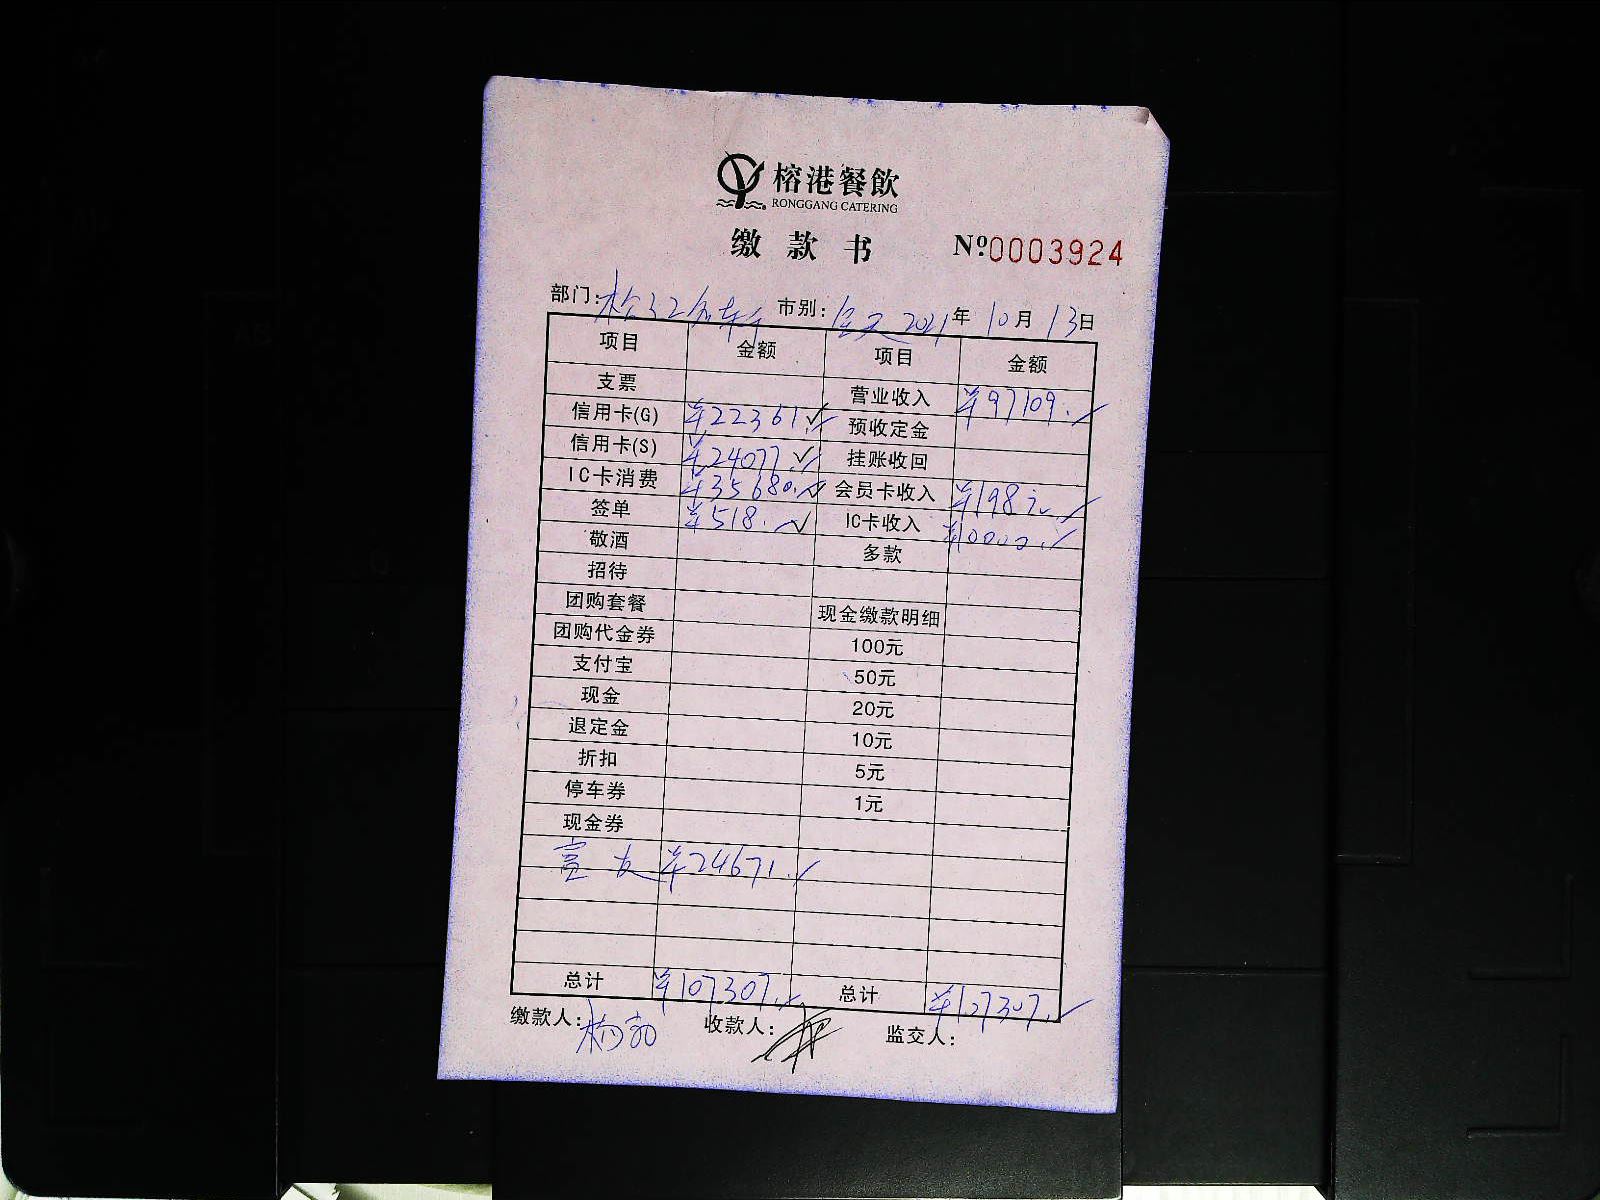 榕港餐飲
RONGGANG CATERING
缴款书 Nº:0003924
部门: 市别: 全天 2021年 10月 13日
项目 金额 项目 金额
支票 营业收入 ¥97109.
信用卡(G) ¥22361. 预收定金
信用卡(S) ¥24077. 挂账收回
IC卡消费 ¥35680. 会员卡收入 ¥198元
签单 ¥518. IC卡收入 ¥10000.
敬酒 多款
招待
团购套餐 现金缴款明细
团购代金券 100元
支付宝 50元
现金 20元
退定金 10元
折扣 5元
停车券 1元
现金券
¥24671.
总计 ¥107307. 总计 ¥107307.
缴款人: 收款人: 监交人: